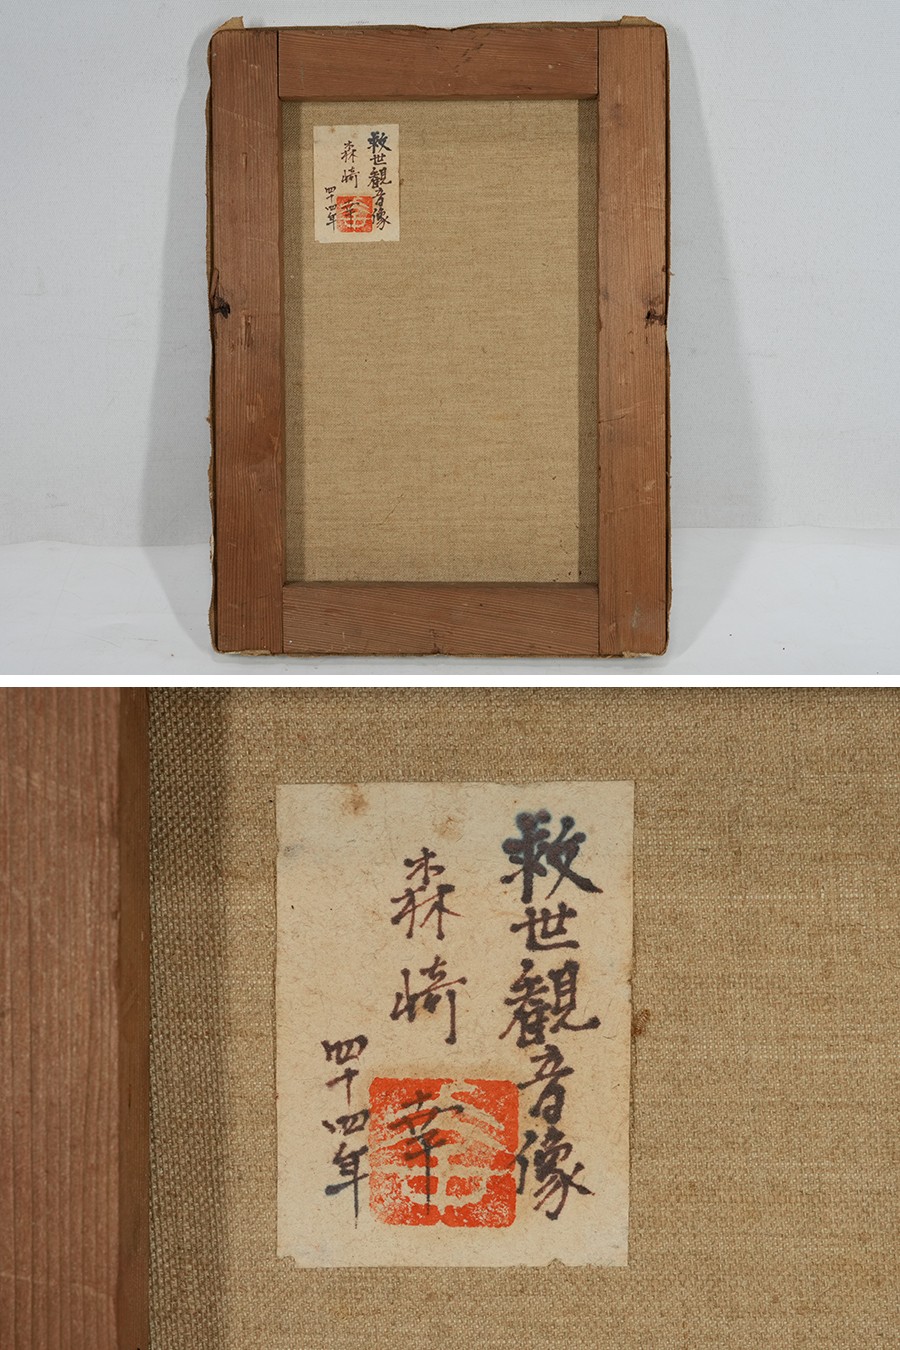 救世觀音像
森崎 幸
四十四年
救世觀音像
森崎 幸
四十四年